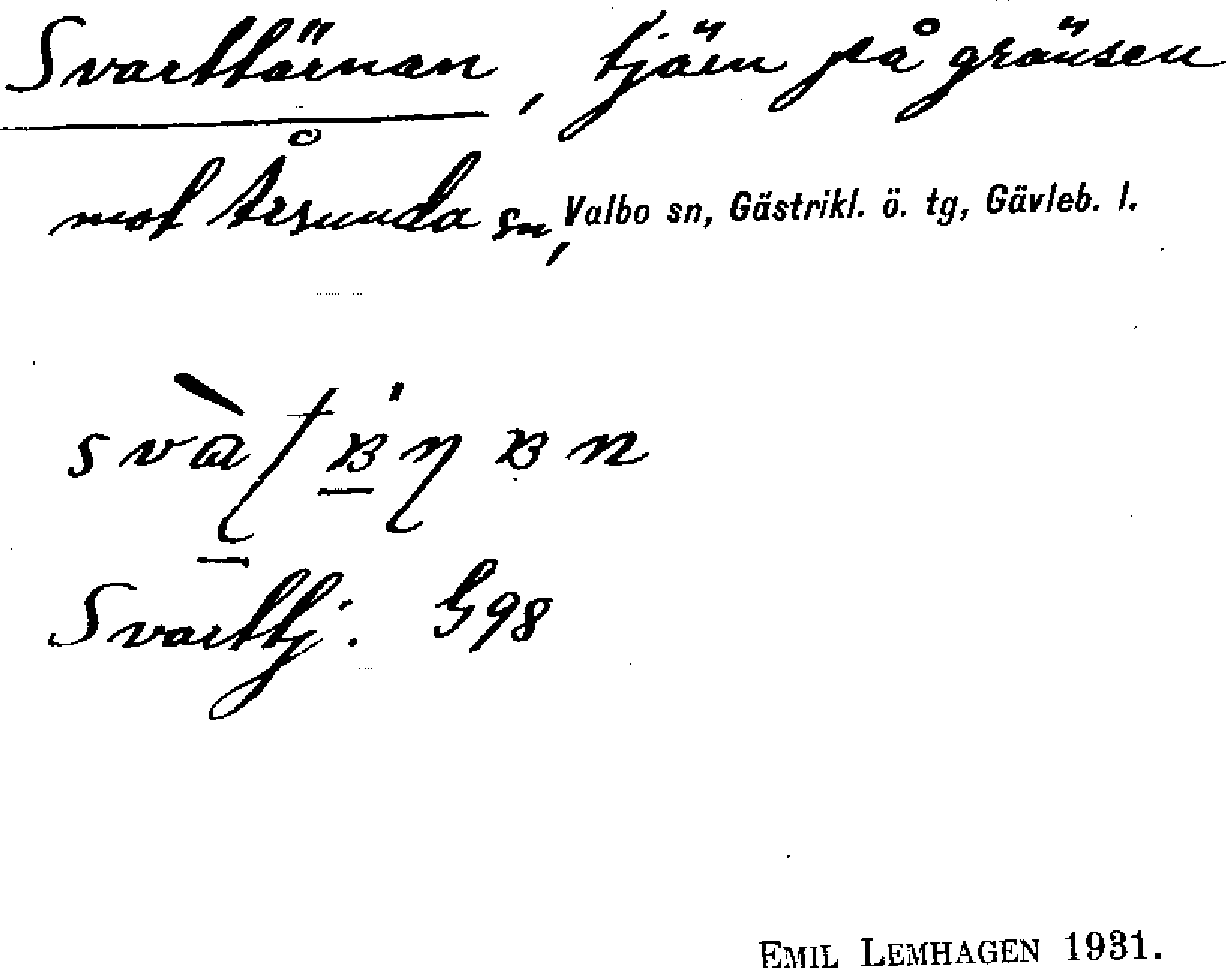 Svarttärnan, tjärn på gränsen
mot Årsunda sn, Valbo sn, Gästrikl. ö. tg, Gävleb. l.
Svarttj. G98
EMIL LEMHAGEN 1931.